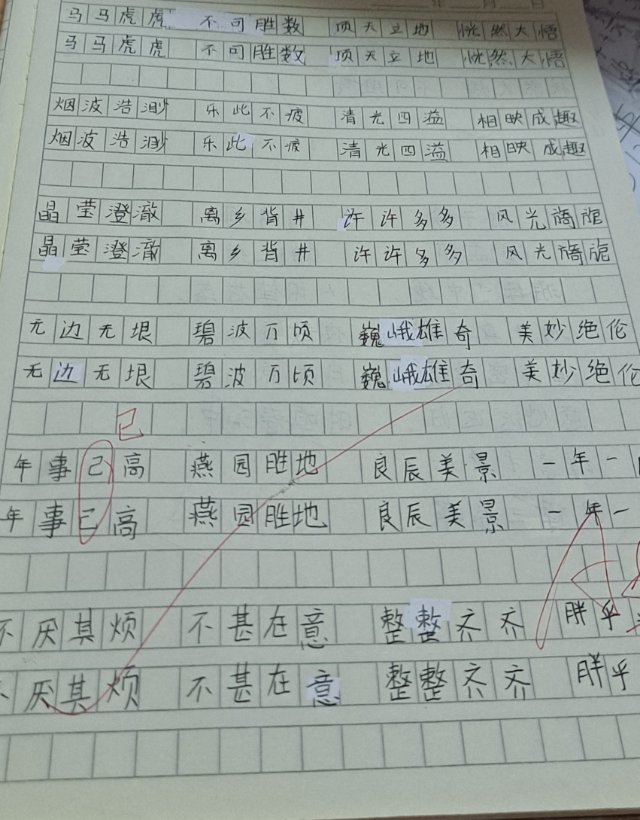 年 月 日
马马虎虎 不可胜数 顶天立地 恍然大悟
马马虎虎 不可胜数 顶天立地 恍然大悟
烟波浩渺 乐此不疲 清光四溢 相映成趣
烟波浩渺 乐此不疲 清光四溢 相映成趣
晶莹澄澈 离乡背井 许许多多 风光旖旎
晶莹澄澈 离乡背井 许许多多 风光旖旎
无边无垠 碧波万顷 巍峨雄奇 美妙绝伦
无边无垠 碧波万顷 巍峨雄奇 美妙绝伦
已
年事己高 燕园胜地 良辰美景 一年一
年事已高 燕园胜地 良辰美景 一年一
不厌其烦 不甚在意 整整齐齐 胖乎
不厌其烦 不甚在意 整整齐齐 胖乎